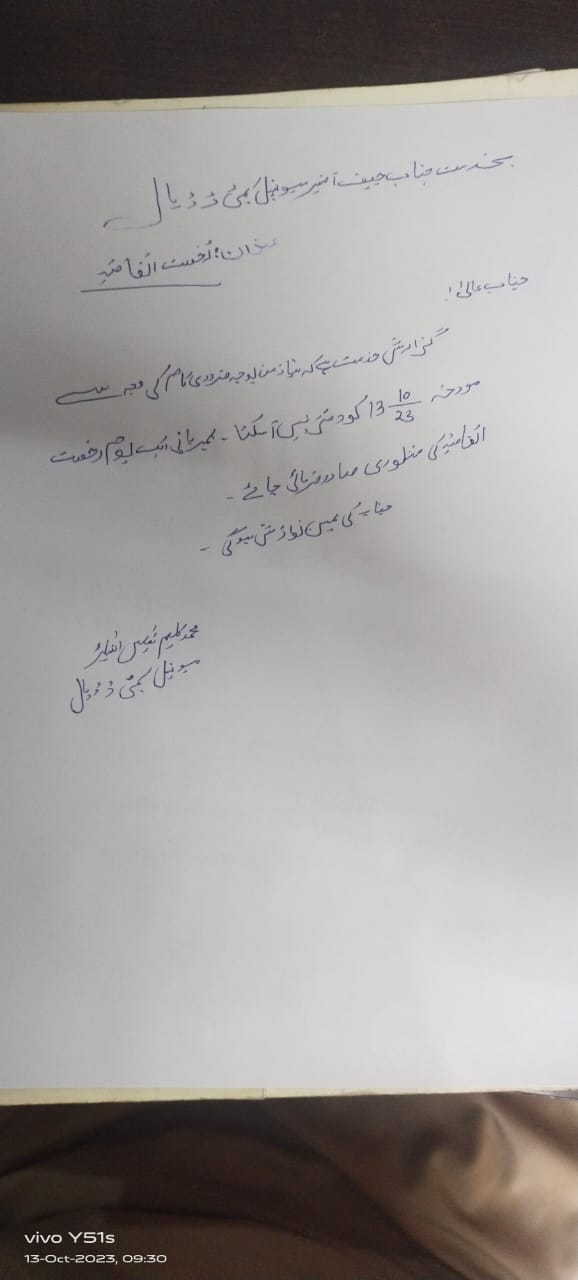 بخدمت جناب چیف آفیسر میونسپل کمیٹی ڈڈیال
عنوان: رخصت اتفاقیہ
جناب عالیٰ!
گزارش خدمت ہے کہ نیاز مند بوجہ ضروری کام کی وجہ سے
مورخہ 13-10/23 کو دفتر نہیں آ سکتا - مہربانی ایک یوم رخصت
اتفاقیہ کی منظوری صادر فرمائی جائے -
جناب کی عین نوازش ہوگی -
محمد کلیم
میونسپل کمیٹی ڈڈیال
vivo Y51s
13-Oct-2023, 09:30